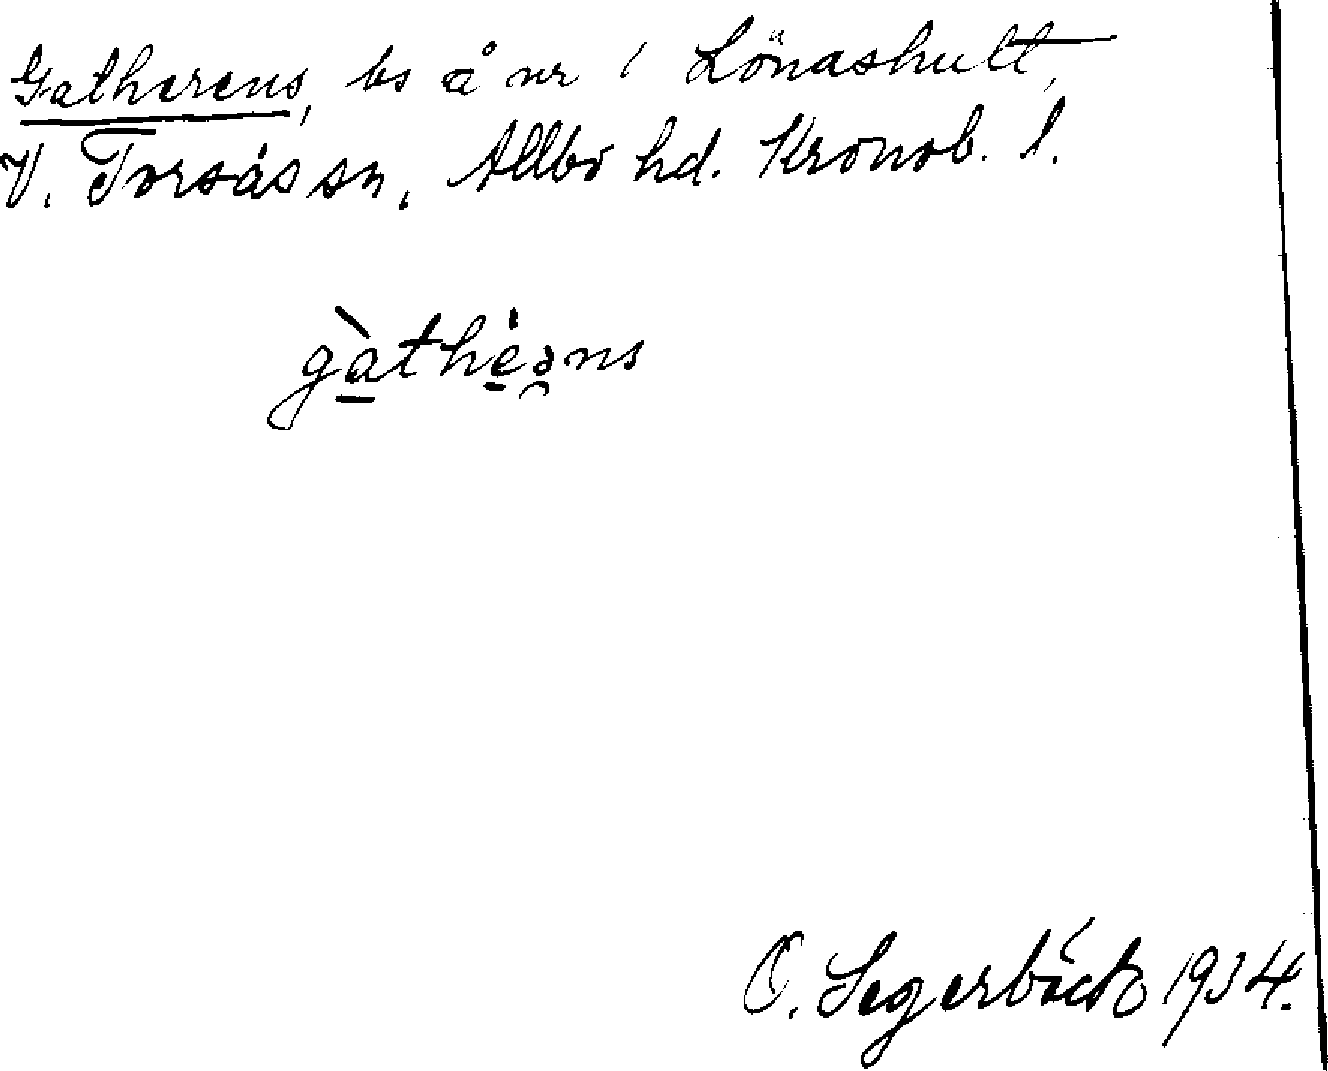 Gatherens, bs å nr 1 Lönashult,
V. Torsås sn, Allbo hd. Kronob. l.
gàthéəns
O. Segerbäck 1934.